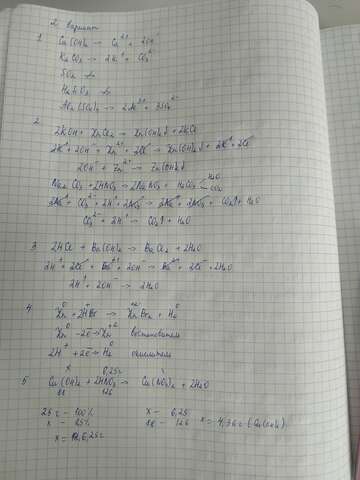 2 вариант
1. Cu(OH)₂ → Cu²⁺ + 2OH⁻
K₂CO₃ → 2K⁺ + CO₃²⁻
SO₂ ↛
H₂SiO₃ ↛
Al₂(SO₄)₃ → 2Al³⁺ + 3SO₄²⁻
2.
2KOH + ZnCl₂ → Zn(OH)₂↓ + 2KCl
2K⁺ + 2OH⁻ + Zn²⁺ + 2Cl⁻ → Zn(OH)₂↓ + 2K⁺ + 2Cl⁻
2OH⁻ + Zn²⁺ → Zn(OH)₂↓
Na₂CO₃ + 2HNO₃ → 2NaNO₃ + H₂CO₃ H₂O CO₂
2Na⁺ + CO₃²⁻ + 2H⁺ + 2NO₃⁻ → 2Na⁺ + 2NO₃⁻ + CO₂↑ + H₂O
CO₃²⁻ + 2H⁺ → CO₂↑ + H₂O
3. 2HCl + Ba(OH)₂ → BaCl₂ + 2H₂O
2H⁺ + 2Cl⁻ + Ba²⁺ + 2OH⁻ → Ba²⁺ + 2Cl⁻ + 2H₂O
2H⁺ + 2OH⁻ → 2H₂O
4. Zn⁰ + 2H⁺Br → Zn⁺²Br₂ + H₂⁰
Zn⁰ - 2e → Zn⁺² восстановитель
2H⁺ + 2e → H₂⁰ окислитель
x 6,25г
5. Cu(OH)₂ + 2HNO₃ → Cu(NO₃)₂ + 2H₂O
126
25г - 100%
x - 25%
x = 6,25г
x - 6,25
- 126
x = 4,36г (Cu(OH)₂)